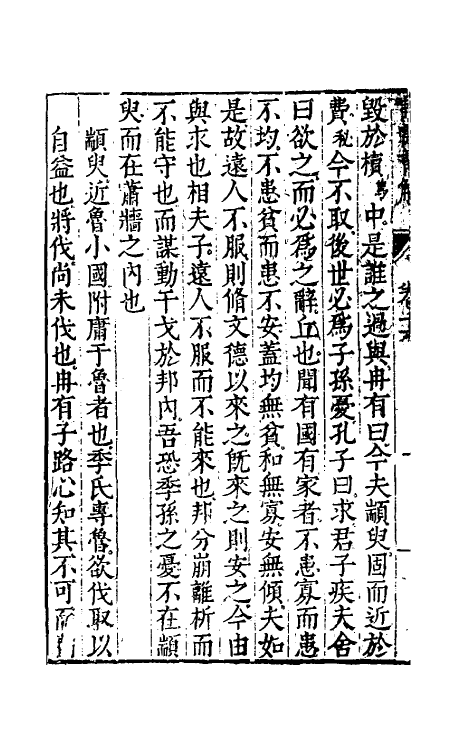 毀於櫝中是誰之過與冉有曰今夫顓臾固而近於
費今不取後世必爲子孫憂孔子曰求君子疾夫舍
曰欲之而必爲之辭丘也聞有國有家者不患寡而患
不均不患貧而患不安蓋均無貧和無寡安無傾夫如
是故遠人不服則脩文德以來之旣來之則安之今由
與求也相夫子遠人不服而不能來也邦分崩離析而
不能守也而謀動干戈於邦內吾恐季孫之憂不在顓
臾而在蕭牆之內也
顓臾近魯小國附庸于魯者也季氏專魯欲伐取以
自益也將伐尚未伐也冉有子路心知其不可